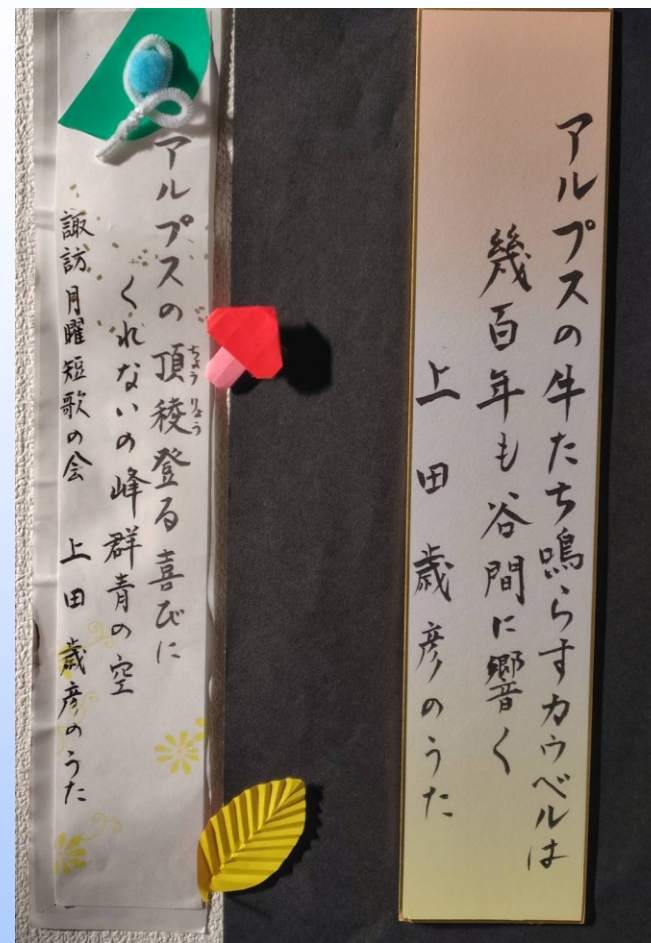 アルプスの牛たち鳴らすカウベルは
幾百年も谷間に響く
上田歳彦のうた
アルプスの頂稜登る喜びに
ちょうりょう
くれないの峰群青の空
諏訪月曜短歌の会 上田歳彦のうた